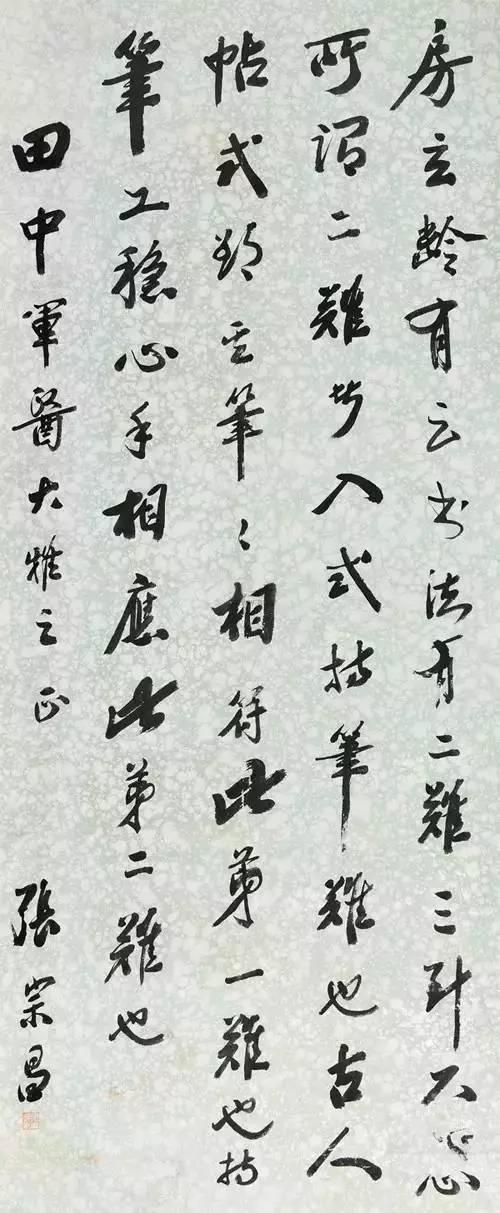 房玄齡有云书法有二難三不忘
所謂二難者入式持筆難也古人
帖式筆々相符此弟一難也持
筆工穩心手相應此苐二難也
田中軍醫大雅之正
張宗昌